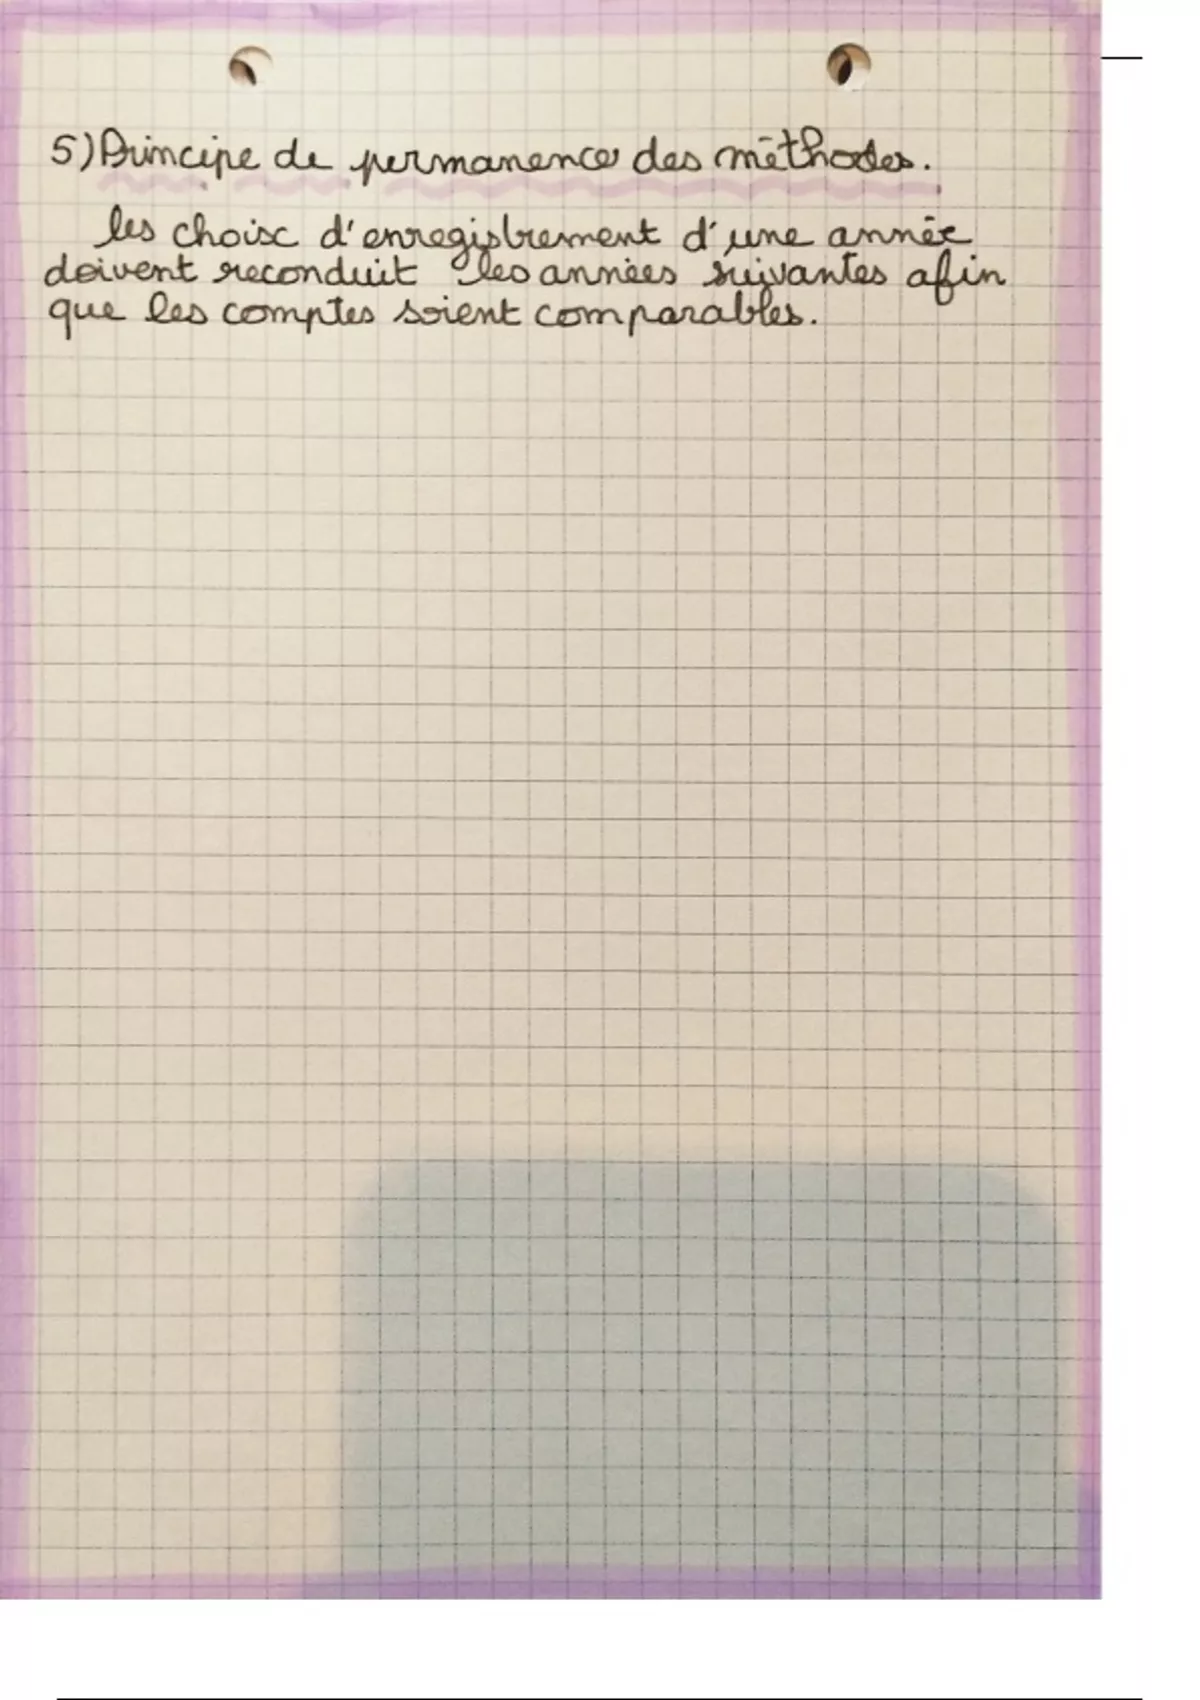 5) Principe de permanence des méthodes.
les choix d'enregistrement d'une année
doivent reconduit les années suivantes afin
que les comptes soient comparables.